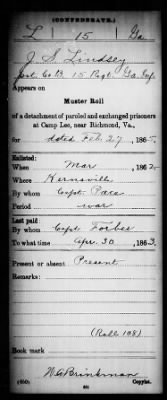 (CONFEDERATE.)
L 15 Ga
J. S. Lindsey
Co. B, 15 Regt. Ga. Inf.
Appears on
Muster Roll
of a detachment of paroled and exchanged prisoners
at Camp Lee, near Richmond, Va.,
for dated Feb. 27, 1865.
Enlisted:
When Mar, 1862.
Where
By whom Capt.
Period war
Last paid:
By whom Capt. Forbes
To what time Apr. 30, 1863.
Present or absent Present
Remarks:
(Roll 198)
Book mark:
N. C. Brinkman
Copyist.